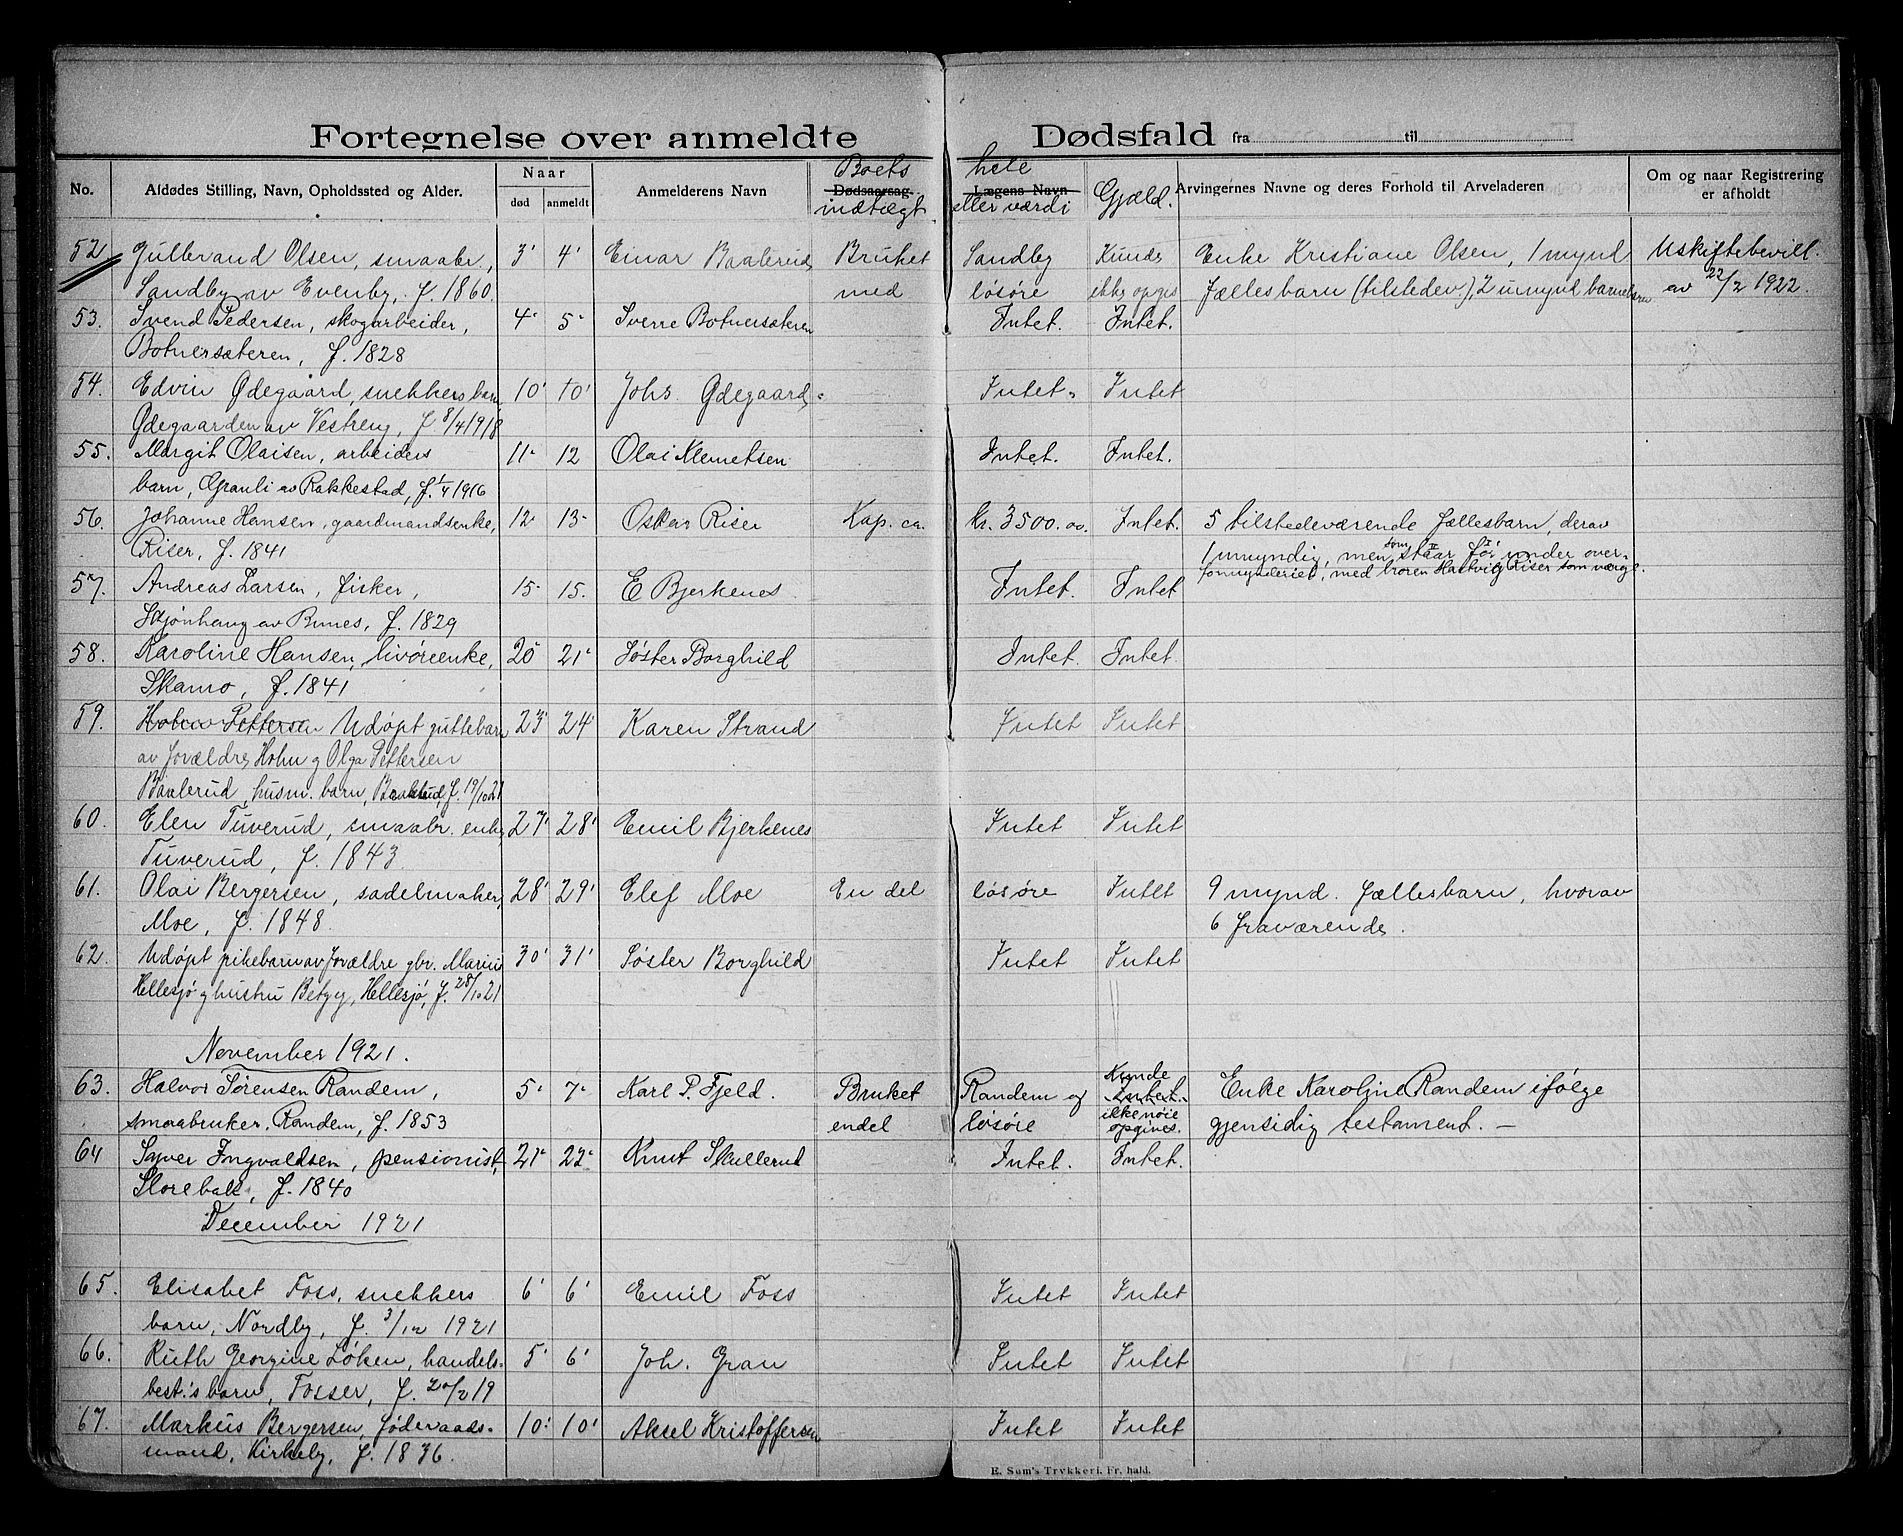 Fortegnelse over anmeldte Dødsfald fra til
No. Afdødes Stilling, Navn, Opholdssted og Alder. Naar død anmeldt Anmelderens Navn Dødsaarsag. Boets indtægt Lægens Navn hele eller værdi Gjæld. Arvingernes Navne og deres Forhold til Arveladeren Om og naar Registrering er afholdt
52. Gulbrand Olsen, smaabr., 3' 4' Einar Baalerud, Bruket Sandby Kunde Enke Kristiane Olsen, 1 mynd Uskiftebevill.
Sandby av Evenby, f. 1860. med løsøre ikke opgis fællesbarn (tilstede), 2 umynd barnebarn av 22/2 1922.
53. Svend Pedersen, skogarbeider, 4' 5' Sverre Botnersæteren Intet. Intet.
Botnersæteren, f. 1828
54. Edvin Ødegaard, snekkers barn, 10' 10' Johs. Ødegaard, Intet. Intet
Ødegaarden av Vestreng, f. 8/4 1918
55. Margit Olaisen, arbeiders 11' 12 Olai Klemetsen Intet. Intet.
barn, Granli av Rakkestad, f. 1/4 1916
56. Johanne Hansen, gaardmandsenke, 12' 13' Oskar Riser Kap. ca. kr. 3500.00 Intet. 5 tilstedeværende fællesbarn, derav
Riser, f. 1841 1 umyndig, men som staar før under over-
57. Andreas Larsen, fisker, 15' 15. E Bjerkenes. Intet. Intet formynderiet, med broren Hartvig Riser som værge.
Skjønhaug av Bunes, f. 1829
58. Karoline Hansen, livøreenke, 20' 21' Søster Borghild Intet. Intet.
Skamo, f. 1841
59. Holm Pettersen Udøpt guttebarn 23' 24' Karen Strand Intet Intet
av forældre Holm g Olga Pettersen
Baalerud, husm. barn, Baalerud, f. 19/10 21
60. Elen Tuverud, smaabr. enke 27' 28' Emil Bjerkenes Intet Intet
Tuverud, f. 1843
61. Olai Bergersen, sadelmaker, 28' 29' Elef Moe En del løsøre Intet 9 mynd. fællesbarn, hvorav
Moe, f. 1848. 6 fraværende.
62. Udøpt pikebarn av forældre gbr. Marius 30' 31' Søster Borghild Intet Intet
Hellesjø g hustru Betzy, Hellesjø, f. 28/10 21
November 1921.
63. Halvor Sørensen Randem, 5' 7' Karl P. Fjeld. Bruket Randem og Intet. Kunde Enke Karoline Randem ifølge
smaabruker, Randem, f. 1853 endel løsøre ikke nøie opgives. gjensidig testament. —
64 Syver Ingvaldsen, pensionist, 21' 22' Knut Skullerud Intet. Intet.
Storebak, f. 1840
December 1921
65. Elisabet Foss, snekkers 6' 6' Emil Foss Intet Intet
barn, Nordby, f. 3/12 1921
66. Ruth Georgine Løken, handels- 5' 6' Joh. Gran Intet Intet
best.'s barn, Fosser, f. 20/2 19
67. Markus Bergersen, føderaads- 10' 10' Aksel Kristoffersen Intet Intet
mand, Kirkeby, f. 1836.
E. Sem's Trykkeri, Fr.hald.